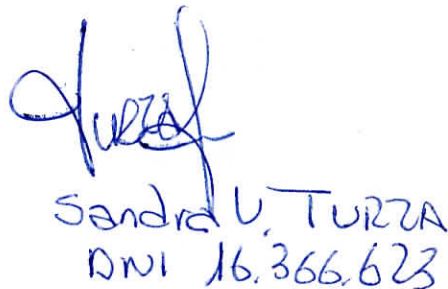 Turza
Sandra V. TURZA
DNI 16.366.623